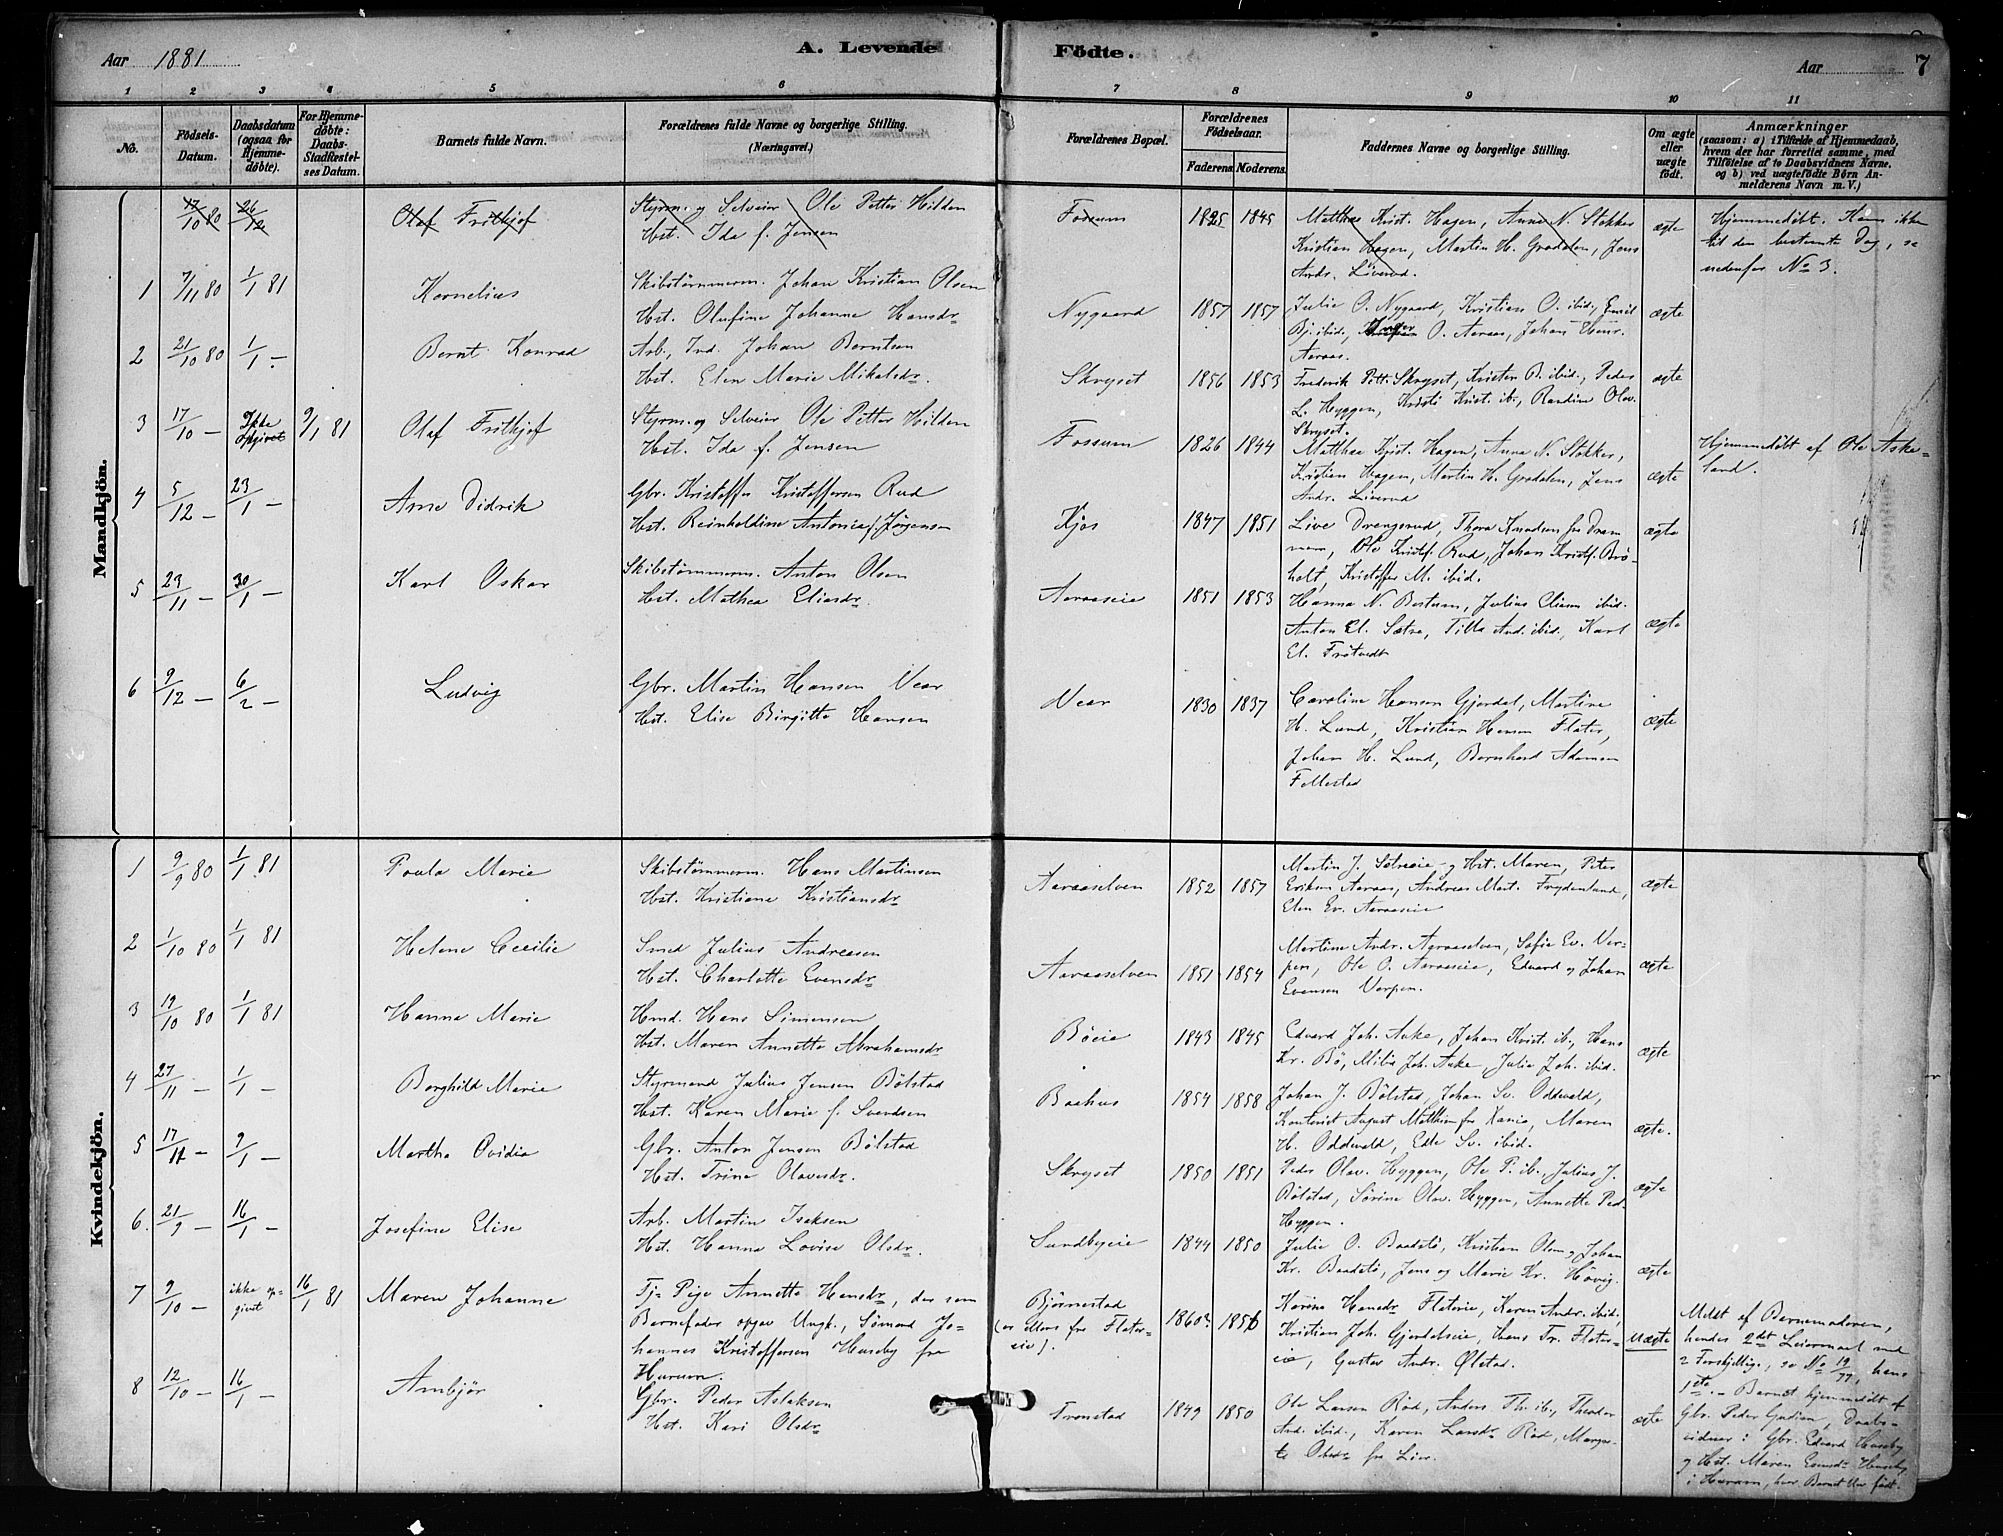 Aar 1881
A. Levende
Födte.
Aar
7
1 2 3 4 5 6 7 8 9 10 11
No.
Födsels-Datum.
Daabsdatum (ogsaa for Hjemme-döbte).
For Hjemme-döbte: Daabs-Stadfæstel-ses Datum.
Barnets fulde Navn.
Forældrenes fulde Navne og borgerlige Stilling.
(Næringsvei.)
Forældrenes Bopæl.
Forældrenes Födselsaar.
Faderens Moderens
Faddernes Navne og borgerlige Stilling.
Om ægte eller uægte födt.
Anmærkninger
(saasom: a) i Tilfælde af Hjemmedaab,
hvem der har forrettet samme, med
Tilföielse af to Daabsvidners Navne,
og b) ved uægtefödte Börn An-
melderens Navn m. V.)
Mandkjön.
17/10 80 26/12 Olaf Frithjof
Styrm. og Selveier Ole Petter Hilden
Hst. Ida f. Jensen
Fossum 1825 1845
Matthea Krist. Hagen, Anna N. Stokker
Kristian Hagen, Martin H. Grodalen, Jens
Andr. Liverud.
ægte
Hjemmedöbt. Kom ikke
til den bestemte Dag, se
nedenfor No 3.
1 7/11 80 1/1 81 Kornelius
Skibstømmerm. Johan Kristian Olsen
Hst. Olufine Johanne Hansdr
Nygaard 1857 1857
Julie O. Nygaard, Kristian O. ibid., Emil
Bj. ibid., Inger O. Aaraas, Johan Henr.
Aaraas.
ægte
2 21/10 80 1/1 - Bernt Konrad
Arb., Ind. Johan Berntsen
Hst. Elen Marie Mikalsdr.
Skryset 1856 1853
Frederik Pett. Skryset, Kristen B. ibid., Peder
L. Hyggen, Kristi Krist. ib., Randine Olav.
Skryset.
ægte
3 17/10 - Ikke opgivet 9/1 81 Olaf Frithjof
Styrm. og Selveier Ole Petter Hilden
Hst. Ida f. Jensen
Fossum 1826 1844
Matthea Krist. Hagen, Anna N. Stokker,
Kristian Hagen, Martin H. Grodalen, Jens
Andr. Liverud
ægte
Hjemmedöbt af Ole Aske-
land.
4 5/12 - 23/1 - Arne Didrik
Gbr. Kristoffer Kristoffersen Rud
Hst. Reinholdine Antonia f. Jørgensen
Kjos 1847 1851
Live Drengsrud, Thora Knudsen fra Dram
men, Ole Kristf. Rud, Johan Kristf. Brö-
holt, Kristoffer M. ibid.
ægte
5 23/11 - 30/1 - Karl Oskar
Skibstømmerm. Anton Olsen
Hst. Mathea Eliasdr.
Aaraaseie 1851 1853
Hanna N. Bertum, Julius Eliasen ibid.
Anton El. Sætre, Tilla And. ibid., Karl
El. Frötvedt
ægte
6 9/12 - 6/2 - Ludvig
Gbr. Martin Hansen Vear
Hst. Elise Birgitte Hansen
Vear 1830 1837
Caroline Hansen Gjerdal, Martine
H. Lund, Kristian Hansen Flater,
Johan H. Lund, Bernhard Adamsen
Follestad
ægte
Kvindekjön.
1 9/9 80 1/1 81 Paula Marie
Skibstömmerm. Hans Martinsen
Hst. Kristiane Kristiansdr
Aaraaselven 1852 1857
Martin J. Sætreeie og Hst. Maren, Peter
Eriksen Aaraas, Andreas Mart. Frydenlund,
Elen Ev. Aaraaseie
ægte
2 1/10 80 1/1 81 Helene Cecilie
Smed Julius Andreasen
Hst. Charlotte Evensdr
Aaraaselven 1851 1854
Martine Andr. Aaraaselven, Sofie Ev. Ver-
pen, Ole O. Aaraaseie, Edvard og Johan
Evensen Verpen.
ægte
3 19/10 80 1/1 81 Hanna Marie
Hmd. Hans Simensen
Hst. Maren Annette Abrahamsdr
Böeie 1843 1845
Edvard Joh. Auke, Johan Krist. ib., Hans
Kr. Bö, Milia Joh. Auke, Julia Joh. ibid.
ægte
4 27/11 - 1/1 - Borghild Marie
Styrmand Julius Jensen Bölstad
Hst. Karen Marie f. Svendsen
Baahus 1854 1858
Johan J. Bölstad, Johan Sv. Oddevald,
Kontorist August Mathisen fra Xania, Maren
H. Oddevald, Edle Sv. ibid.
ægte.
5 17/11 - 9/1 - Martha Ovidia
Gbr. Anton Jensen Bölstad
Hst. Trine Olavesdr.
Skryset 1850 1851
Peder Olav. Hyggen, Ole P. ib., Julius J.
Bölstad, Sörine Olav. Hyggen, Annette Ped.
Hyggen.
ægte
6. 21/9 - 16/1 - Josefine Elise
Arb. Martin Isaksen
Hst. Hanna Lovise Olsdr.
Sundbyeie 1844 1850
Julie O. Baadstö, Kristian Olsen og Johan
Kr. Baadstö, Jens og Marie Kr. Hövig.
ægte
7 9/10 - ikke op-givet 16/1 81 Maren Johanne
Tj. Pige Annette Hansdr, der som
Barnefader opgav Ungk., Sömand Jo-
hannes Kristoffersen Huseby fra
Hurum.
Björnestad
(er ellers fra Flater-
eie).
1860? 1856
Karine Hansdr Flaterie, Karen Andr. ibid.,
Kristian Joh. Gjerdalseie, Hans Fr. Flater-
eie, Gustav Andr. Ølstad.
uægte
Meldt af Barnemoderen,
hendes 2det Leiermaal med
2 Forskjellige, se No 19/77, hans
1ste. - Barnet hjemmedöbt af
Gbr. Peder Gudian, Daabs-
vidner: Gbr. Edvard Huseby
og Hst. Maren Evensdr Huseby
i Hurum, hvor Barnet blev födt.
8 12/10 - 16/1 - Ambjör
Gbr. Peder Aslaksen
Hst. Kari Olsdr
Tronstad 1849 1850
Ole Larsen Röd, Anders Th. ib., Theodor
And. ibid., Karen Larsdr Röd, Margre-
te Olsdr fra Lier.
ægte